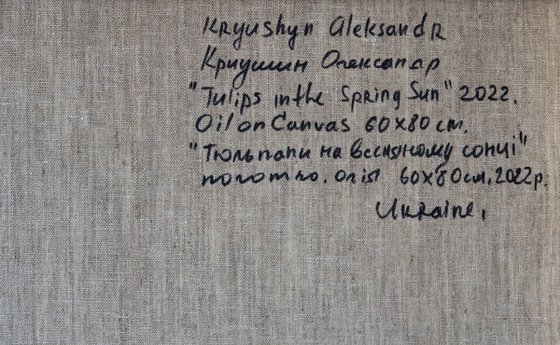 Kryushyn Aleksandr
Криушин Олександр
"Tulips in the Spring Sun" 2022.
Oil on Canvas 60x80 cm.
"Тюльпани на весняному сонці"
полотно. олія 60x80 см, 2022р.
Ukraine,